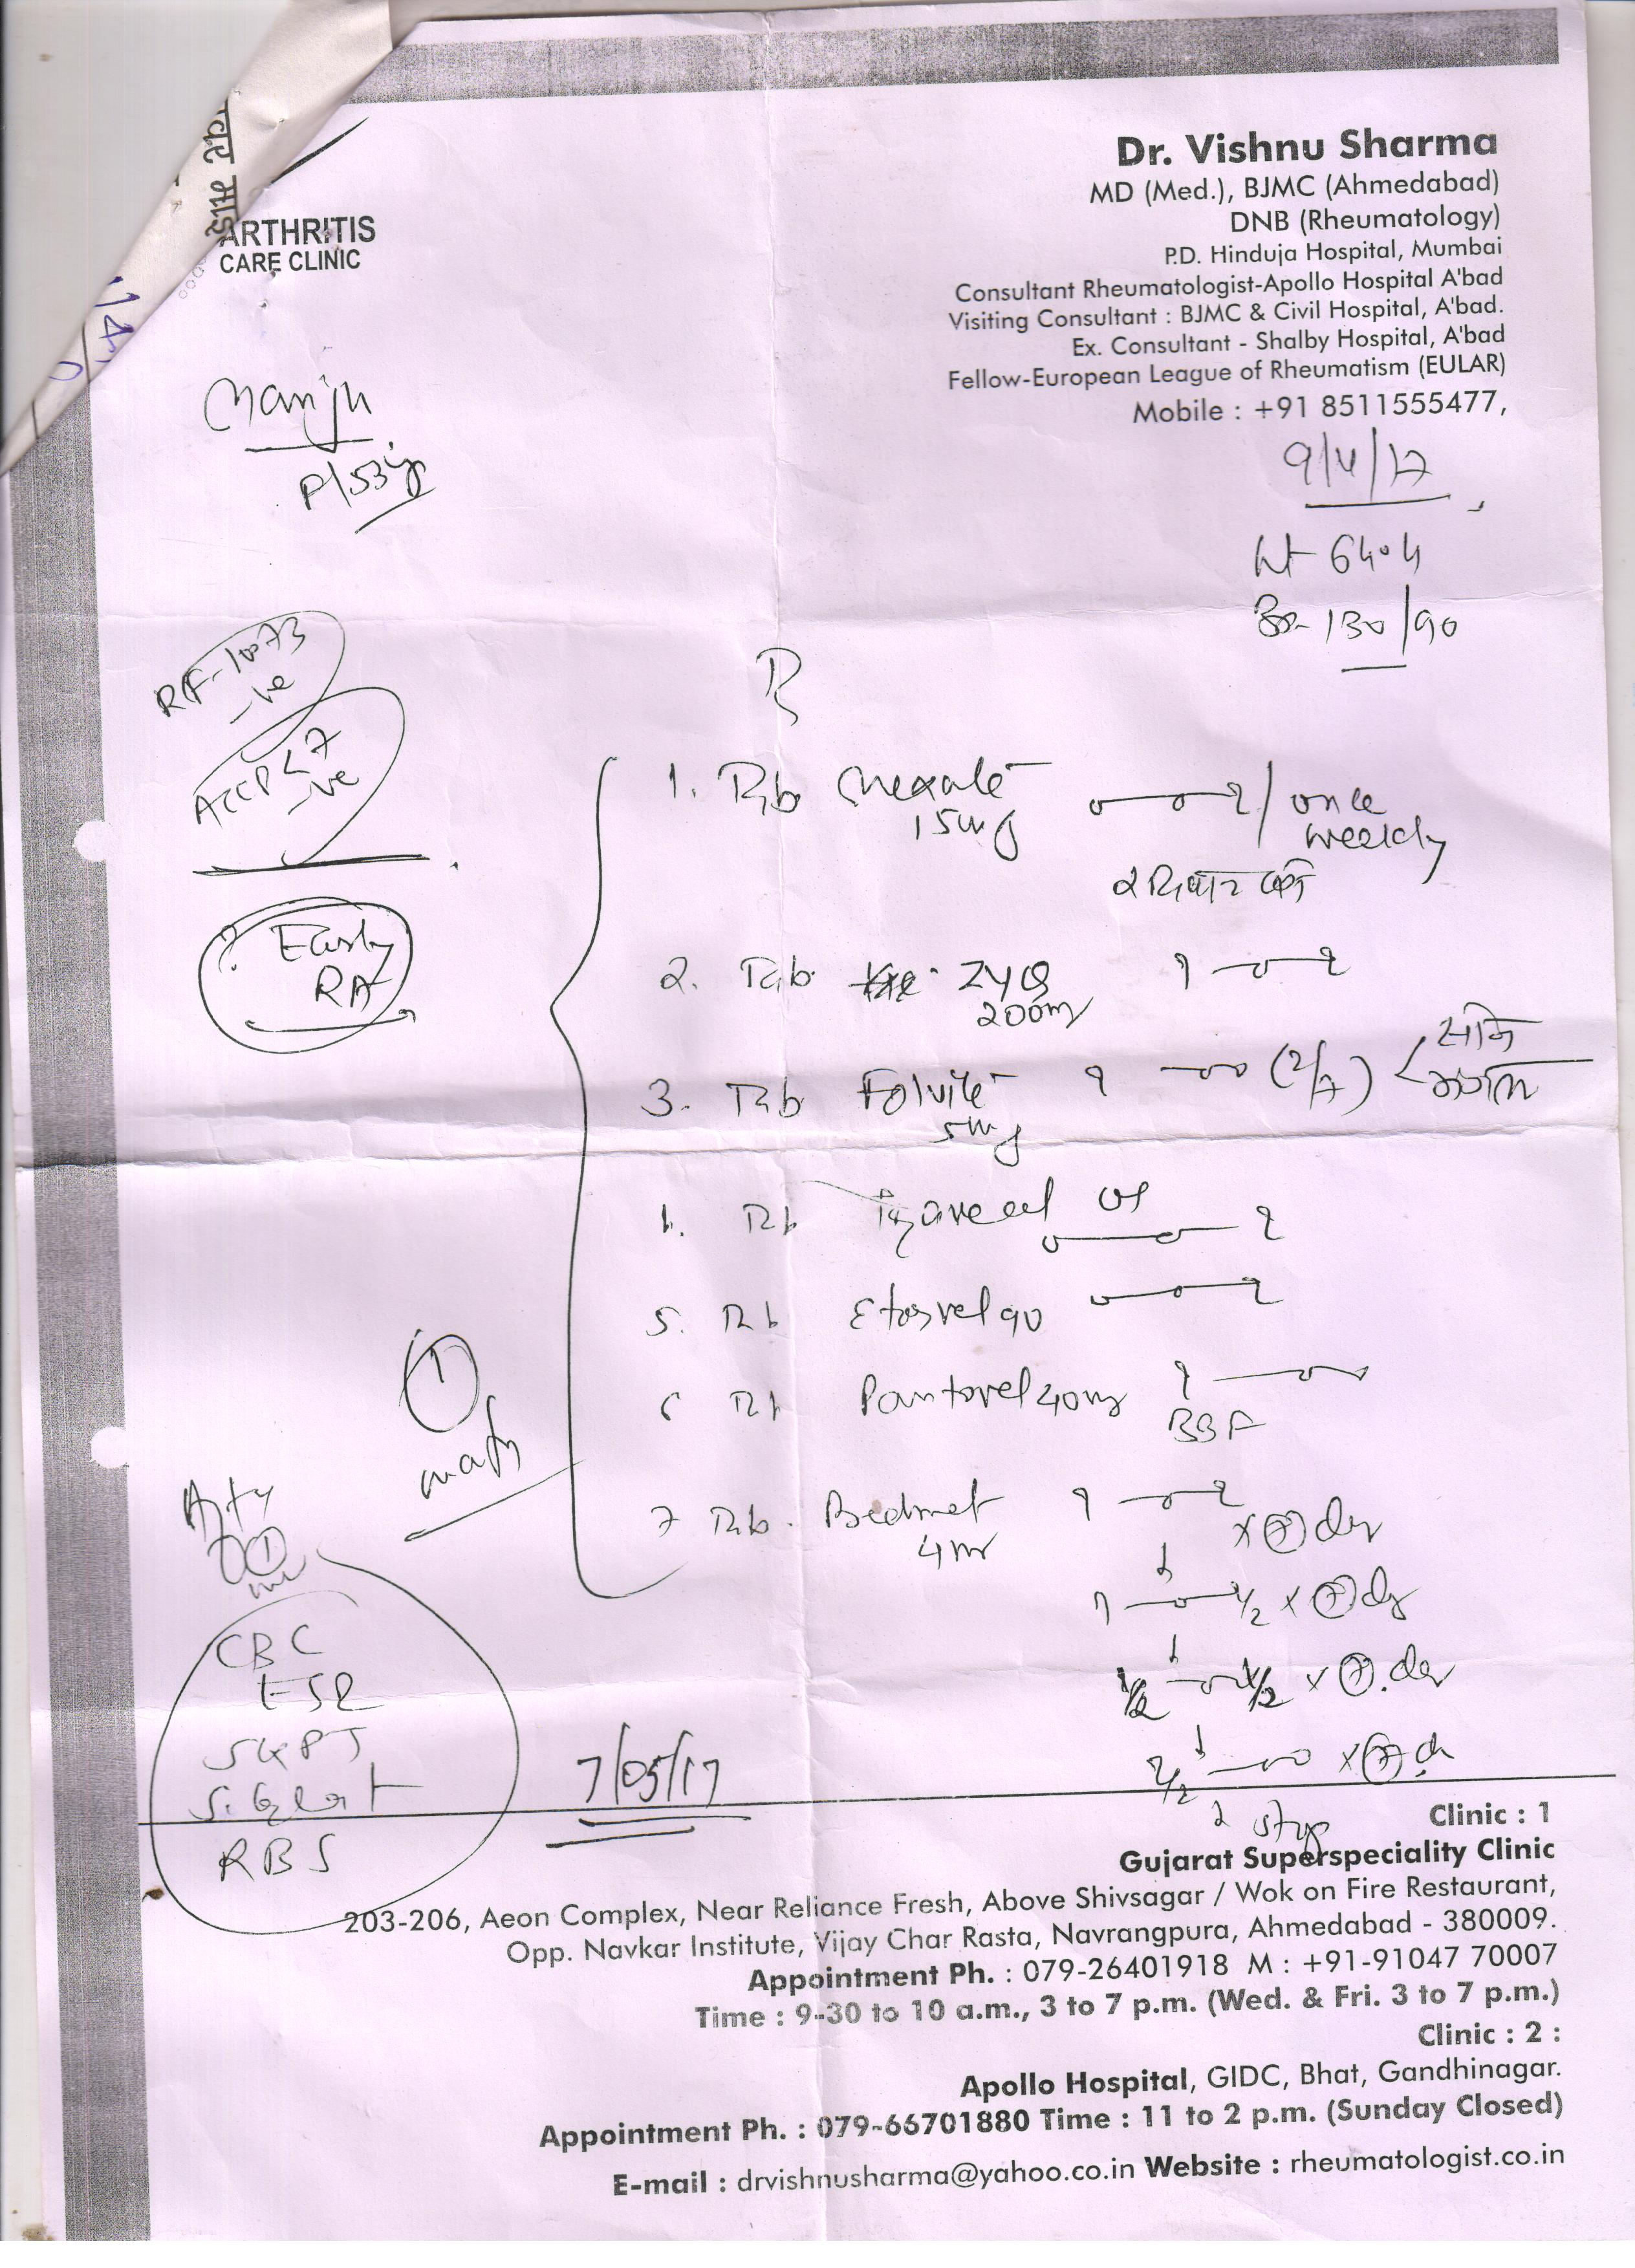 Dr. Vishnu Sharma
MD (Med.), BJMC (Ahmedabad)
DNB (Rheumatology)
P.D. Hinduja Hospital, Mumbai
Consultant Rheumatologist-Apollo Hospital A'bad
Visiting Consultant : BJMC & Civil Hospital, A'bad.
Ex. Consultant - Shalby Hospital, A'bad
Fellow-European League of Rheumatism (EULAR)
Mobile : +91 8511555477,
ARTHRITIS
CARE CLINIC
Manju
53
9/4/17
Wt 64.4
BP- 130/90
RF-
-ve
ACCP <7
-ve
? Early
RA
1. Tab Mexate
15mg
once
weekly
2. Tab ZYQ
200m
3. Tab Folvite (2/7)
5mg
Tab
5. Tab 90
6 Tab 40m
BBF
7 Tab. Bedmet
4m
x 7 day
1/2 x 7 dy
1/2 1/2 x 7 day
1/2 x 7 d
stop
1
After
1
CBC
ESR
SGPT
S. Creat
RBS
7/05/17
Clinic : 1
Gujarat Superspeciality Clinic
203-206, Aeon Complex, Near Reliance Fresh, Above Shivsagar / Wok on Fire Restaurant,
Opp. Navkar Institute, Vijay Char Rasta, Navrangpura, Ahmedabad - 380009.
Appointment Ph. : 079-26401918 M : +91-91047 70007
Time : 9-30 to 10 a.m., 3 to 7 p.m. (Wed. & Fri. 3 to 7 p.m.)
Clinic : 2 :
Apollo Hospital, GIDC, Bhat, Gandhinagar.
Appointment Ph. : 079-66701880 Time : 11 to 2 p.m. (Sunday Closed)
E-mail : drvishnusharma@yahoo.co.in Website : rheumatologist.co.in